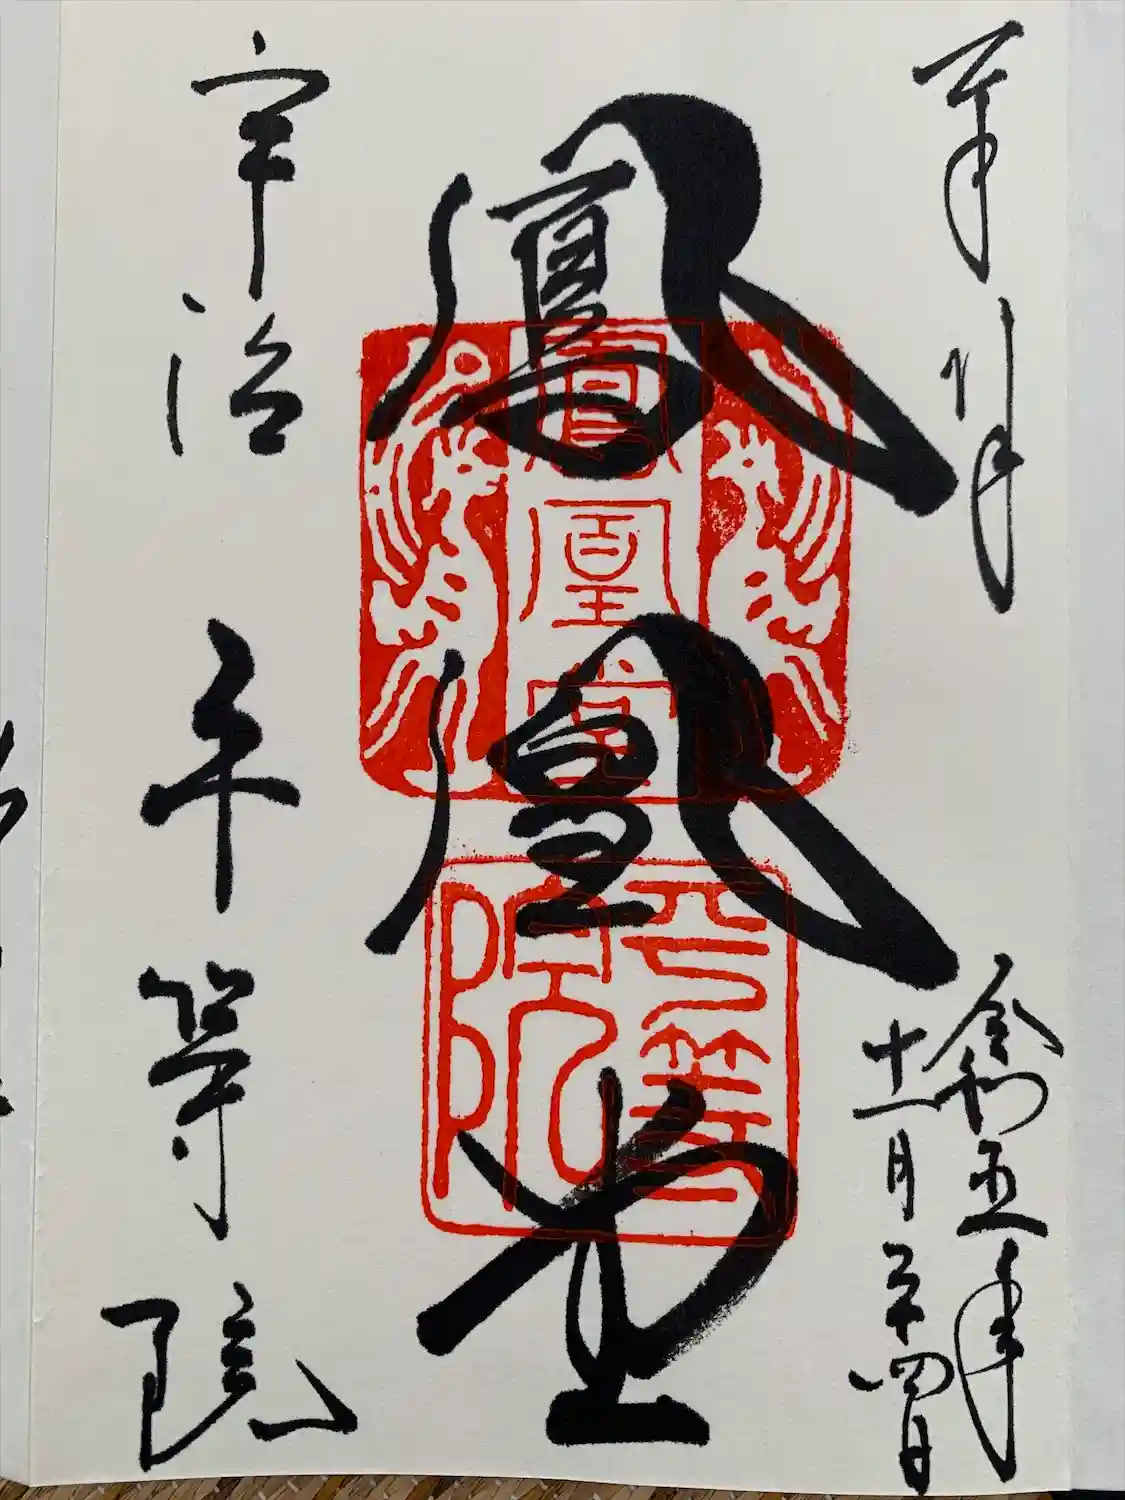 奉拝
令和五年
十一月二十四日
鳳凰堂
鳳凰堂
平等院
宇治 平等院